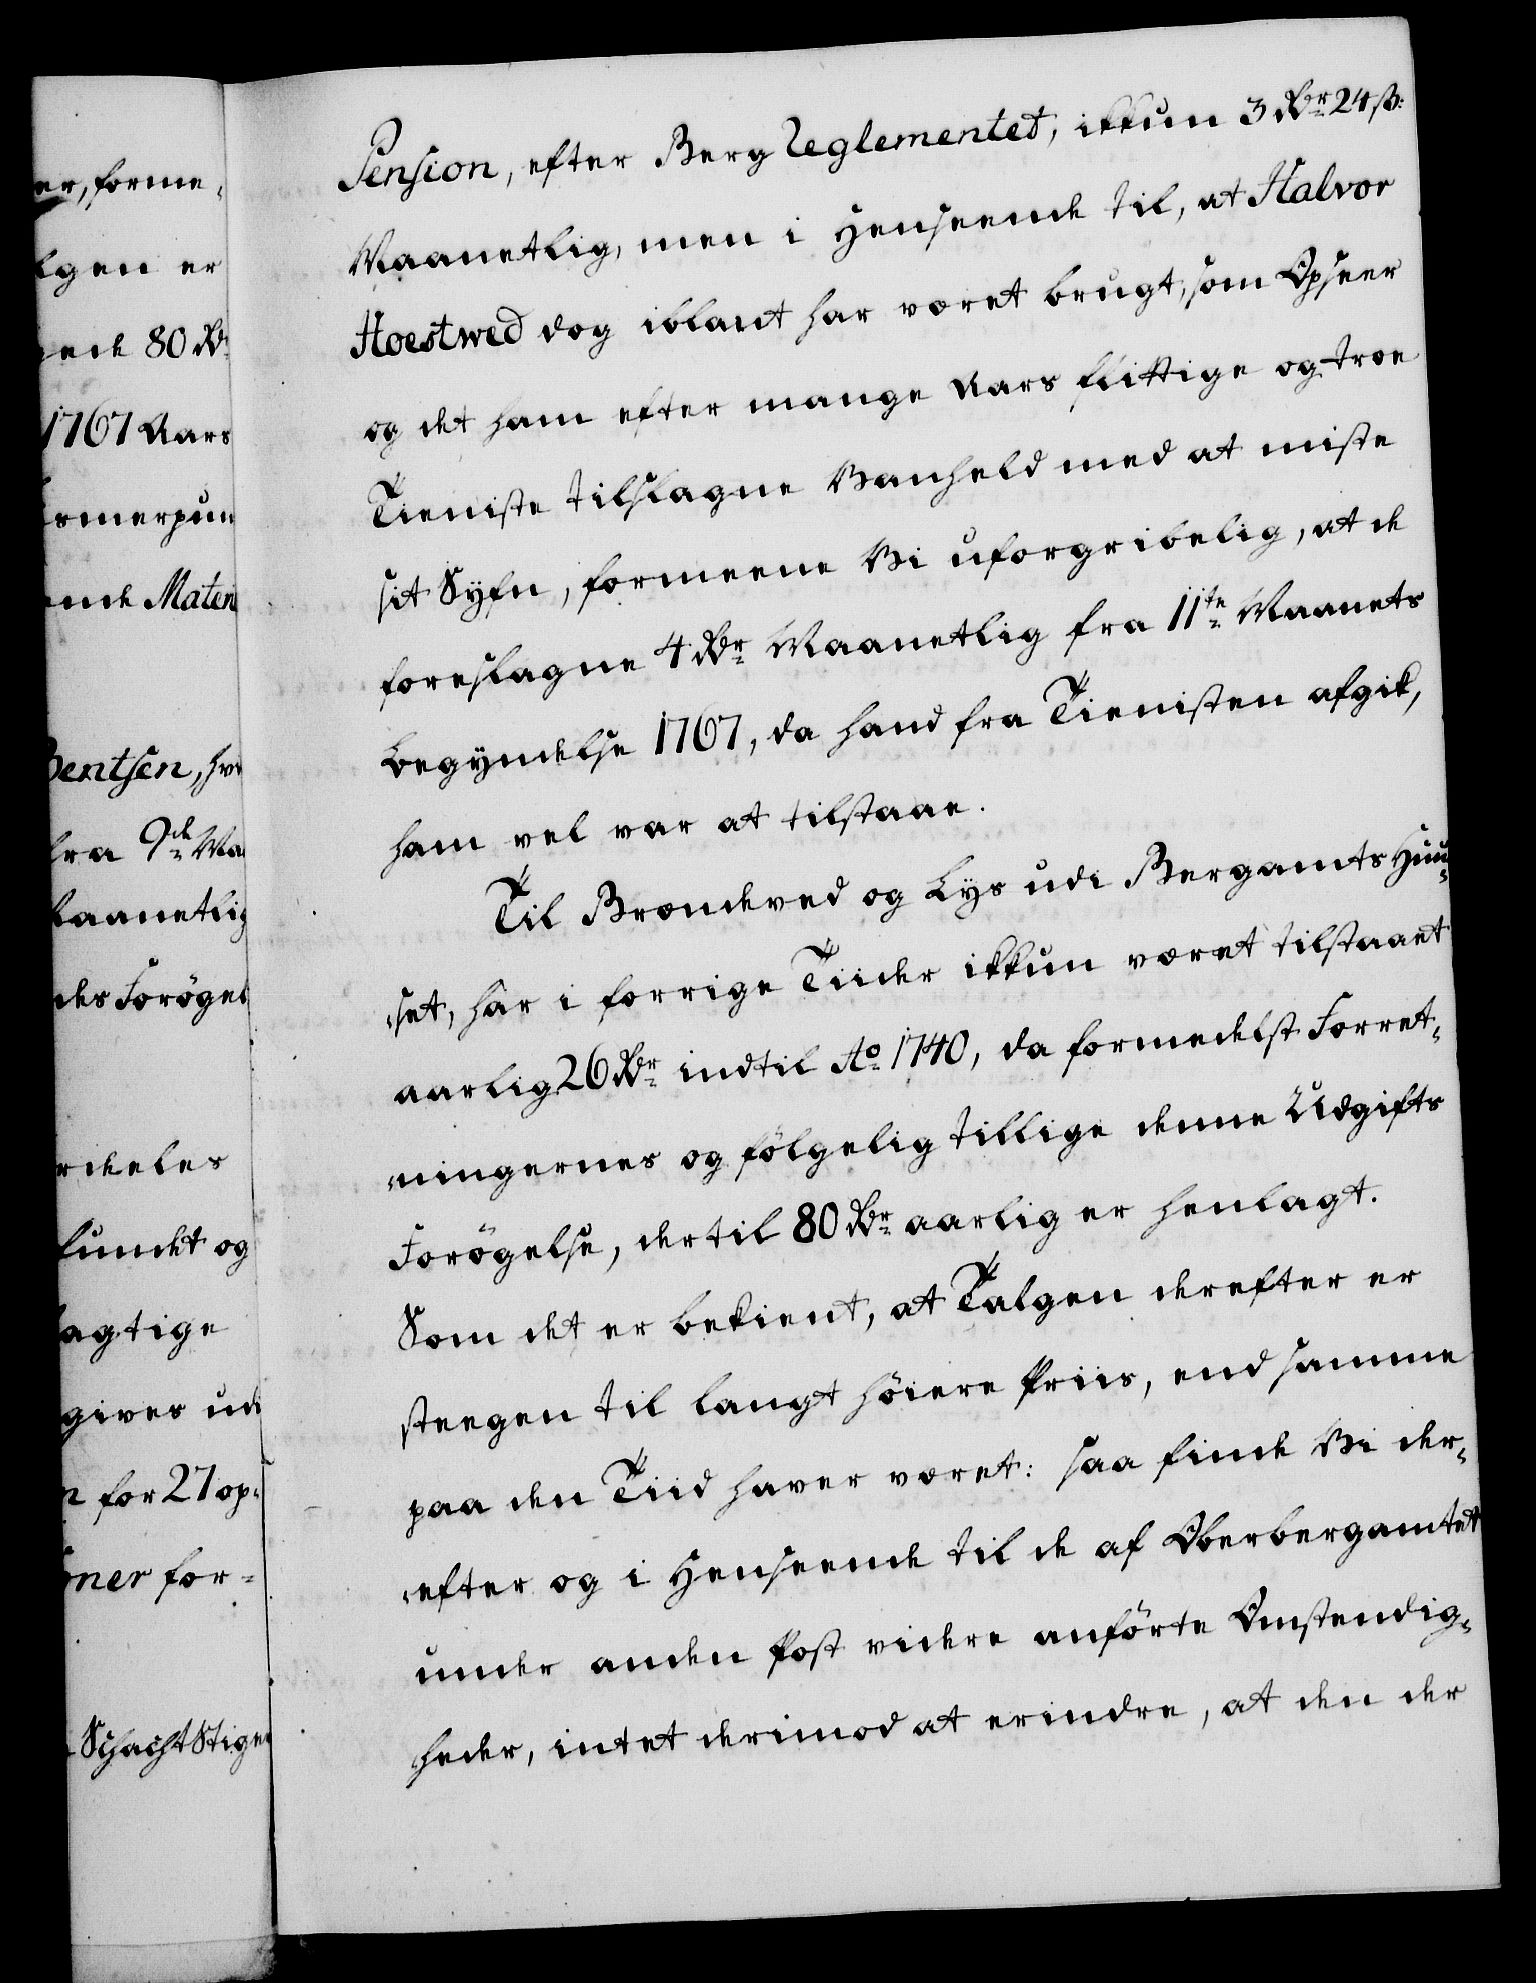 er, forme-
lgen er
ende 80 Rdr
1767 Aars
ermerpun
ende Mater
Bentsen, hvi
fra 9de Ma
Maanetlig
des Forøgel
rdeles
fundet og
agtige
gives udi
n for 27 op-
mer for-
Schacht Stiger
Pension, efter Berg Reglementet, ikkun 3 Rdr 24 ß:
Maanetlig, men i Henseende til, at Halvor
Hoestwed dog iblant har været brugt, som Opseer
og det ham efter mange Aars flittige og troe
Tieniste tilslagne Vanheld med at miste
sit Syfn, formeene Vi uforgribelig, at de
foreslagne 4 Rdr Maanetlig fra 11te Maanets
Begyndelse 1767, da hand fra Tienisten afgik,
ham vel var at tilstaae.
Til Brændeved og Lys udi Bergamts Huu-
-set, har i forrige Tiider ikkun været tilstaaet
aarlig 26 Rdr indtil Ao 1740, da formedelst Forret-
-ningernes og følgelig tillige denne Udgifts
Forøgelse, dertil 80 Rdr aarlig er henlagt.
Som det er bekient, at Talgen derefter er
steegen til langt høiere Priis, end samme
paa den Tiid haver været: saa finde Vi der-
-efter og i Henseende til de af Oberbergamtet
under anden Post videre anførte Omstendig-
-heder, intet derimod at erindre, at den der